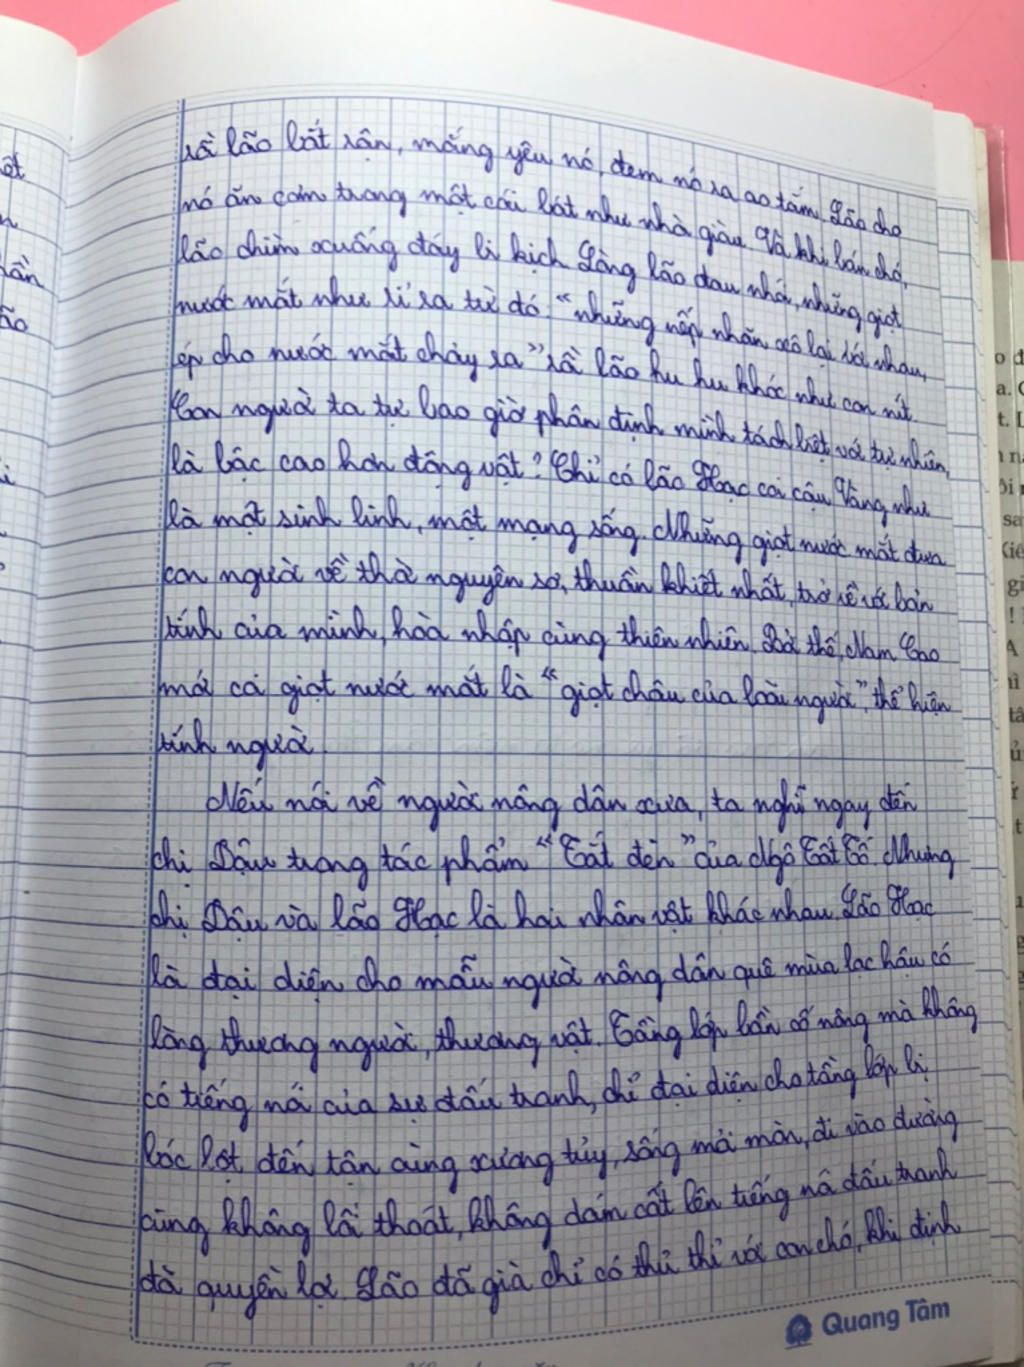 rồi lão bắt rận, mắng yêu nó, đem nó ra ao tắm. Lão cho
nó ăn cơm trong một cái bát như nhà giàu. Và khi bán chó,
lão chìm xuống đáy bi kịch. Lòng lão đau nhói, những giọt
nước mắt như rỉ ra từ đó: "những nếp nhăn xô lại với nhau,
ép cho nước mắt chảy ra" rồi lão hu hu khóc như con nít.
Con người ta tự bao giờ phân định mình tách biệt với tự nhiên,
là bậc cao hơn động vật? Chỉ có lão Hạc coi cậu Vàng như
là một sinh linh, một mạng sống. Những giọt nước mắt đưa
con người về thời nguyên sơ, thuần khiết nhất, trở về với bản
tính của mình, hòa nhập cùng thiên nhiên. Bởi thế, Nam Cao
mới coi giọt nước mắt là "giọt châu của loài người", thể hiện
tính người.
Nếu nói về người nông dân xưa, ta nghĩ ngay đến
chị Dậu trong tác phẩm "Tắt đèn" của Ngô Tất Tố. Nhưng
chị Dậu và lão Hạc là hai nhân vật khác nhau. Lão Hạc
là đại diện cho mẫu người nông dân quê mùa lạc hậu có
lòng thương người, thương vật. Tầng lớp bần cố nông mà không
có tiếng nói của sự đấu tranh, chỉ đại diện cho tầng lớp bị
bóc lột đến tận cùng xương tủy, sống mỏi mòn, đi vào đường
cùng không lối thoát, không dám cất lên tiếng nói đấu tranh
đòi quyền lợi. Lão đã già chỉ có thủ thỉ với con chó, khi định
Quang Tâm